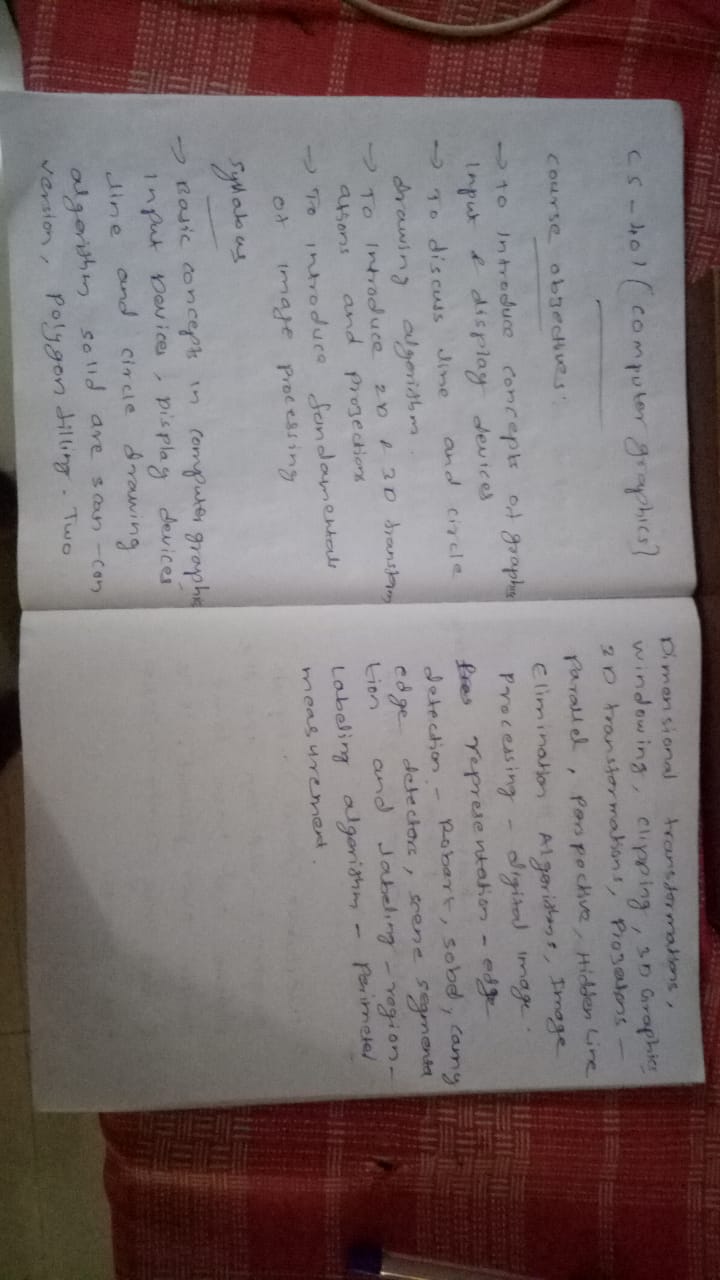 CS-401 (computer graphics)
course objectives:
→ to introduce concepts of graphics
input & display devices
→ To discuss line and circle
drawing algorithm.
→ To introduce 2D & 3D transform
ations and projections
→ To introduce fundamentals
of image processing
Syllabus
→ Basic concepts in computer graphic
input devices, Display devices
line and circle drawing
algorithm solid are scan-con
version, polygon filling. Two
Dimensional transformations,
windowing, clipping, 3D Graphics
3D transformations, Projections -
Parallel, Perspective, Hidden Line
Elimination Algorithms, Image
processing - digital image.
representation - edge
detection - Robert, sobel, canny
edge detectors, scene segmenta
tion and labeling - region -
Labeling algorithm - Perimeter
measurement.